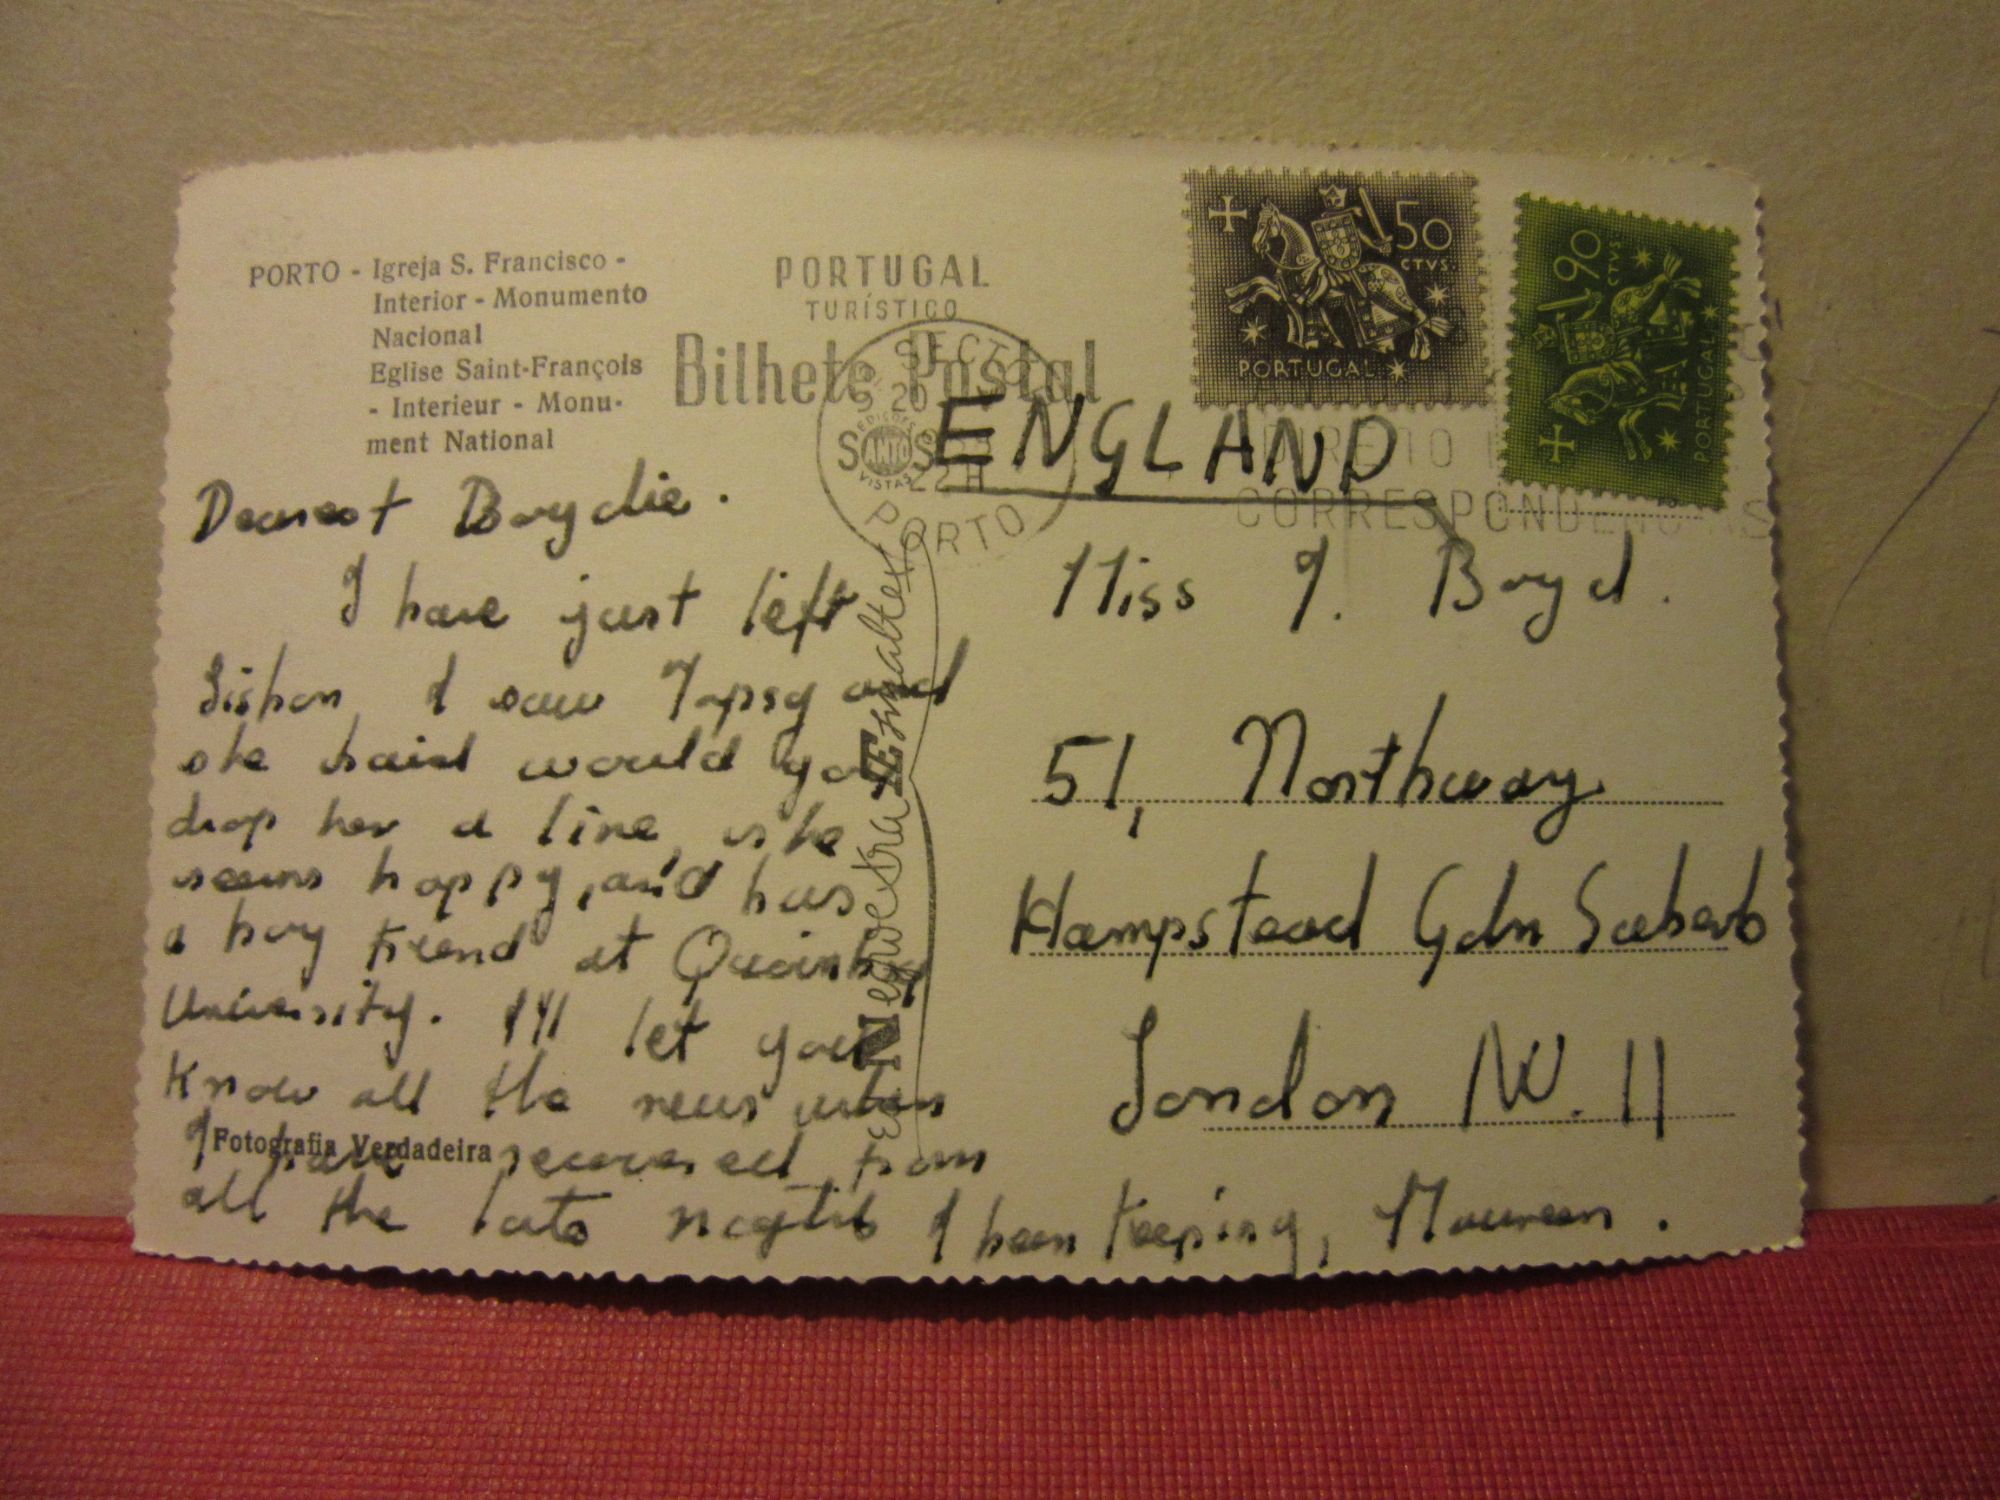 PORTO - Igreja S. Francisco -
Interior - Monumento
Nacional
Eglise Saint-François
- Interieur - Monu-
ment National
PORTUGAL
TURÍSTICO
Bilhete Postal
50
CTVS.
PORTUGAL
90
CTVS.
PORTUGAL
20
22H
PORTO
EDIÇÕES
VISTAS
CORRESPONDENCIAS
ENGLAND
Dearest Boydie.
I have just left
Lisbon I saw Topsy and
she said would you
drop her a line, she
seems happy, and has
a boy friend at
University. I'll let you
Know all the news when
I have recovered from
all the late nights I been Keeping, Maureen.
Fotografia Verdadeira
Miss J. Boyd.
51, Northway
Hampstead Gdn Suburb
London NW. 11